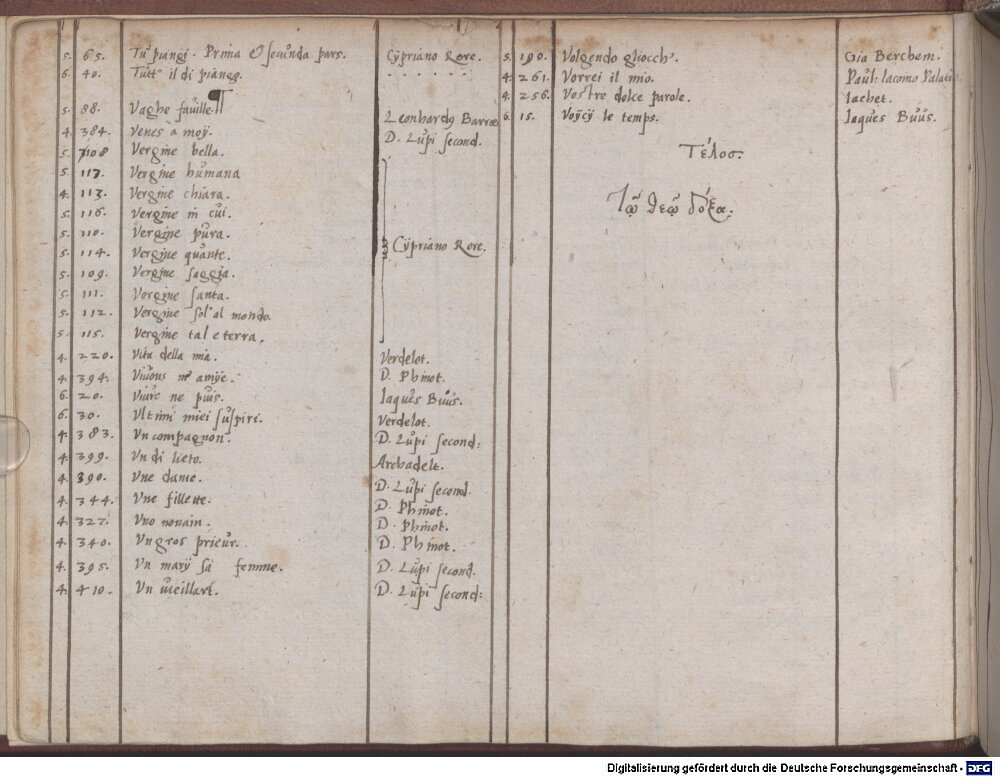 5. 65. Tu piangi. Prima et secunda pars. Cypriano Rore.
6. 40. Tutt' il di piango. . . . . . . .
5. 88. Vaghe faville. Leonhardus Barræ
4. 384. Venes à moy. D. Lupi second.
5. 108 Vergine bella.
5. 117. Vergine humana
4. 113. Vergine chiara.
5. 116. Vergine in cui.
5. 110. Vergine pura.
5. 114. Vergine quante. Cypriano Rore.
5. 109. Vergine saggia.
5. 111. Vergine santa.
5. 112. Vergine sol' al mondo.
5. 115. Vergine tal e terra.
4. 220. Vita della mia. Verdelot.
4. 394. Vivons m'amye. D. Phinot.
6. 20. Vivre ne puis. Iaques Buus.
6. 30. Ultimi miei suspiri. Verdelot.
4. 383. Un compagnon. D. Lupi second:
4. 399. Un di lieto. Archadelt.
4. 390. Une dame. D. Lupi second.
4. 344. Une fillette. D. Phinot.
4. 327. Uno nonain. D. Phinot.
4. 340. Un gros prieur. D. Phinot.
4. 395. Un mary sa femme. D. Lupi second.
4. 410. Un vieillart. D. Lupi second:
5. 190. Volgendo gliocch'. Gia Berchem.
4. 261. Vorrei il mio. Paul: Iacomo Palatio
4. 256. Vostre dolce parole. Iachet.
6. 15. Voycy le temps. Iaques Buus.
Τέλος.
Τῷ θεῷ δόξα.
Digitalisierung gefördert durch die Deutsche Forschungsgemeinschaft - DFG